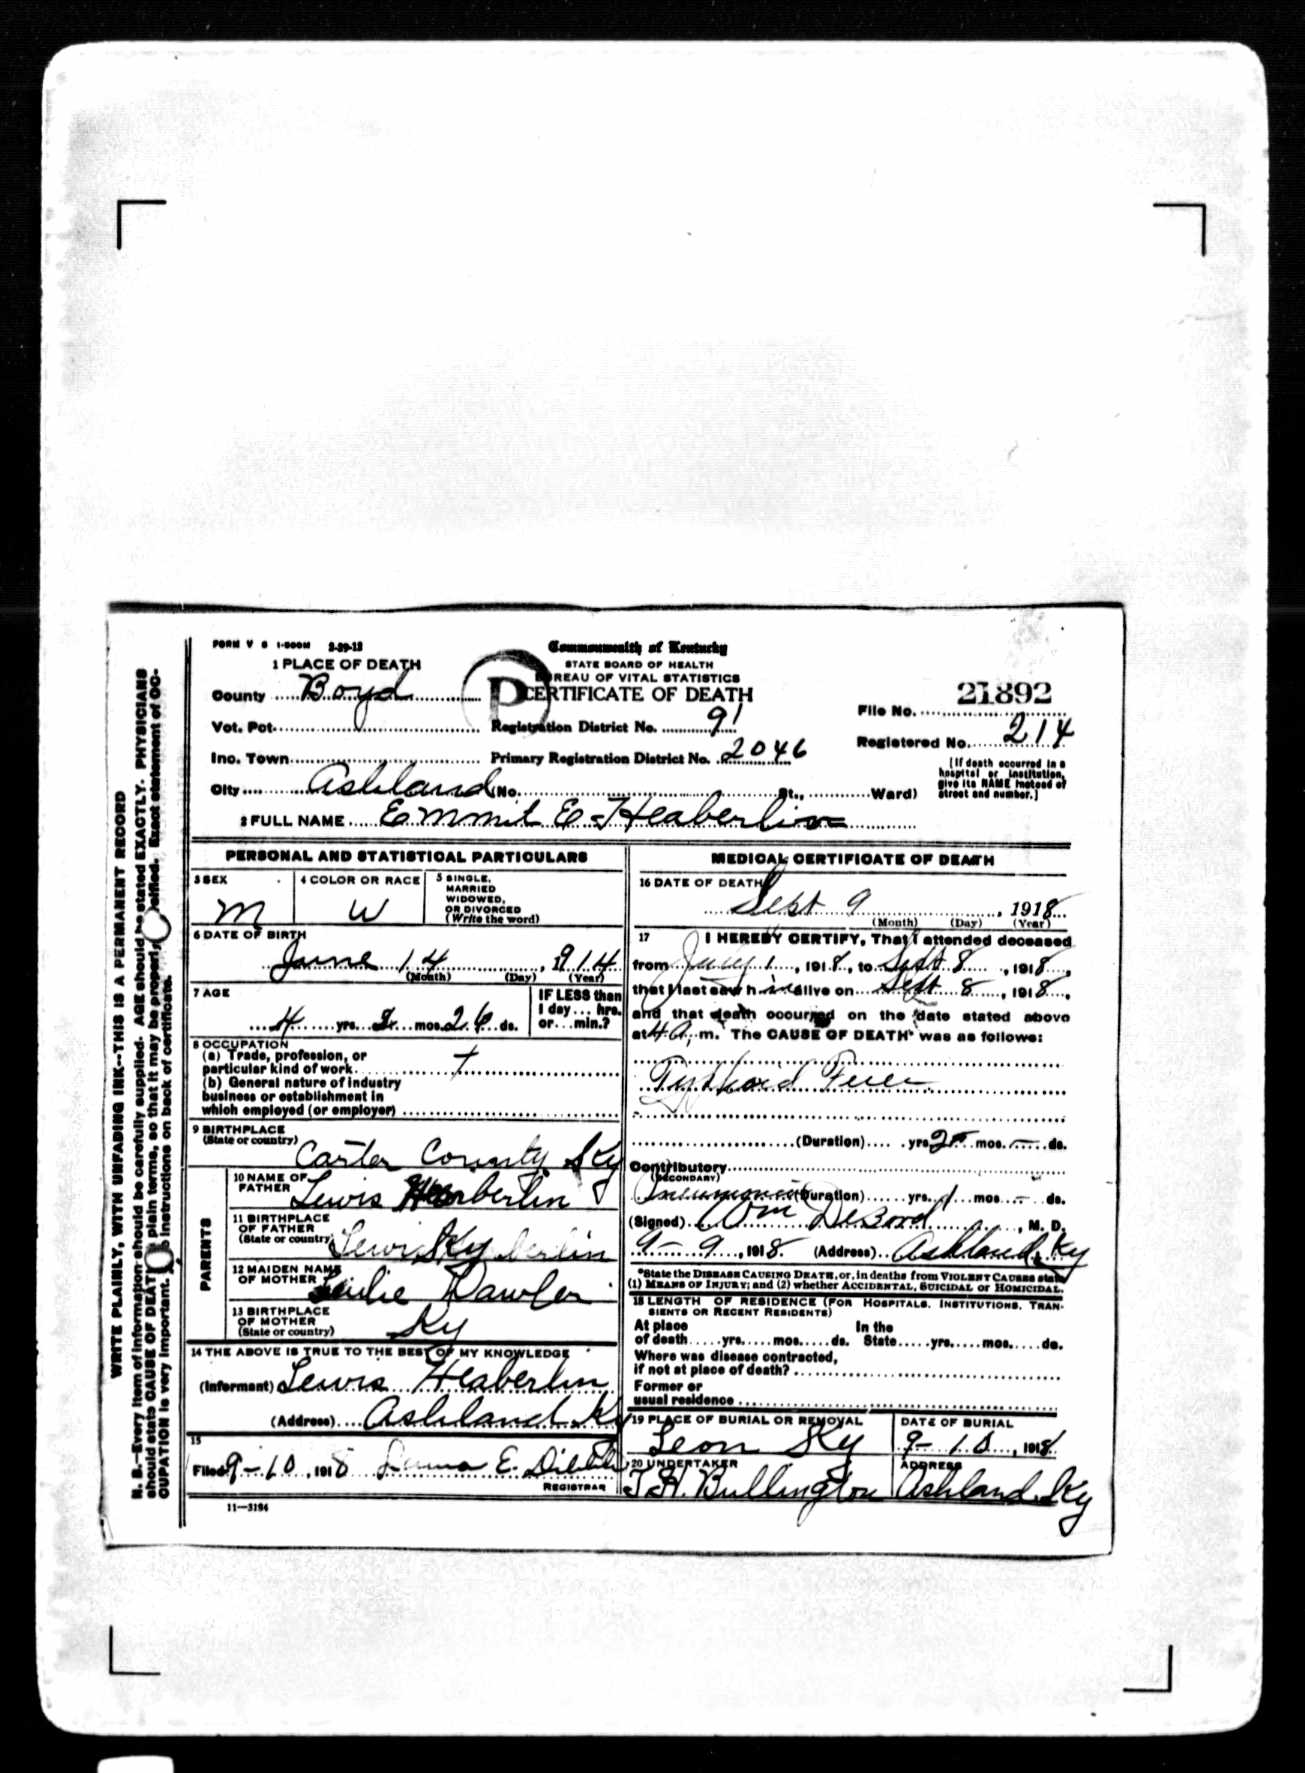 FORM V S 1-500M 2-29-12
Commonwealth of Kentucky
STATE BOARD OF HEALTH
BUREAU OF VITAL STATISTICS
CERTIFICATE OF DEATH
1 PLACE OF DEATH
County Boyd
Vot. Pct.
Inc. Town
City Ashland (No. St., Ward)
Registration District No. 91
Primary Registration District No. 2046
File No. 21892
Registered No. 214
[If death occurred in a
hospital or institution,
give its NAME instead of
street and number.]
2 FULL NAME Emmit E Heaberlin
PERSONAL AND STATISTICAL PARTICULARS
3 SEX
M
4 COLOR OR RACE
W
5 SINGLE,
MARRIED
WIDOWED,
OR DIVORCED
(Write the word)
6 DATE OF BIRTH
June 14, 914
(Month) (Day) (Year)
7 AGE
4 yrs. 2 mos. 26 ds.
IF LESS than
1 day... hrs.
or... min.?
8 OCCUPATION
(a) Trade, profession, or
particular kind of work
(b) General nature of industry
business or establishment in
which employed (or employer)
9 BIRTHPLACE
(State or country)
Carter County Ky
PARENTS
10 NAME OF
FATHER
Lewis Heaberlin
11 BIRTHPLACE
OF FATHER
(State or country)
Lewis Ky berlin
12 MAIDEN NAME
OF MOTHER
13 BIRTHPLACE
OF MOTHER
(State or country)
Ky
14 THE ABOVE IS TRUE TO THE BEST OF MY KNOWLEDGE
(Informant) Lewis Heaberlin
(Address) Ashland Ky
15
Filed 9-10, 1918
E.
REGISTRAR
11—3194
MEDICAL CERTIFICATE OF DEATH
16 DATE OF DEATH
Sept 9, 1918
(Month) (Day) (Year)
17 I HEREBY CERTIFY, That I attended deceased
from July 1, 1918, to Sept 8, 1918,
that I last saw h im alive on Sept 8, 1918,
and that death occurred on the date stated above
at 4 A. m. The CAUSE OF DEATH* was as follows:
Typhoid Fever
(Duration) yrs. 2 mos. — ds.
Contributory
(SECONDARY)
Pneumonia (Duration) yrs. 1 mos. — ds.
(Signed) Wm DeBord, M. D.
9-9, 1918 (Address) Ashland, Ky
*State the DISEASE CAUSING DEATH, or, in deaths from VIOLENT CAUSES state
(1) MEANS OF INJURY; and (2) whether ACCIDENTAL, SUICIDAL or HOMICIDAL.
18 LENGTH OF RESIDENCE (FOR HOSPITALS, INSTITUTIONS, TRAN-
SIENTS OR RECENT RESIDENTS)
At place In the
of death yrs. mos. ds. State yrs. mos. ds.
Where was disease contracted,
if not at place of death?
Former or
usual residence
19 PLACE OF BURIAL OR REMOVAL
Leon Ky
DATE OF BURIAL
9-10, 1918
20 UNDERTAKER
Bullington
ADDRESS
Ashland Ky
WRITE PLAINLY, WITH UNFADING INK--THIS IS A PERMANENT RECORD
N. B.—Every item of information should be carefully supplied. AGE should be stated EXACTLY. PHYSICIANS
should state CAUSE OF DEATH in plain terms, so that it may be properly classified. Exact statement of OC-
CUPATION is very important. See instructions on back of certificate.